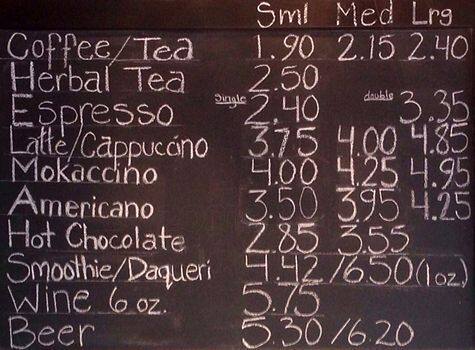 Sml Med Lrg
Coffee/Tea 1.90 2.15 2.40
Herbal Tea 2.50
Espresso Single 2.40 double 3.35
Latte/Cappuccino 3.75 4.00 4.85
Mokaccino 4.00 4.25 4.95
Americano 3.50 3.95 4.25
Hot Chocolate 2.85 3.55
Smoothie/Daqueri 4.42 /6.50 (1 oz)
Wine 6 oz. 5.75
Beer 5.30 /6.20